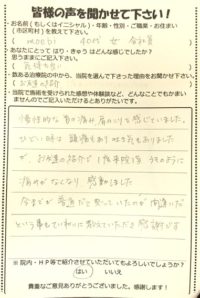 皆様の声を聞かせて下さい!
お名前(もしくはイニシャル)・年齢・性別・ご職業・お住まい
(市区町村)を教えて下さい。
40代 女 会社員
あなたにとって はり・きゅう はどんな感じでしょうか?
思うままにご記入下さい。
気持ちいい
数ある治療院の中から、当院を選んで下さった理由をお聞かせ下さい。
当院で施術を受けられた感想や体験談など、どんなことでもかまい
ませんのでご記入いただけるとありがたいです。
慢性的な首の痛み 肩のこりを感じていました。
ひどい時は 頭痛もあり 吐き気もありました
が、お友達の紹介で 1度来院
痛みがなくなり 感動しました
今までが 普通だと思っていたのが 間違いだ
という事も 感謝です
※ 院内・HP等で紹介させていただいてもよろしいでしょうか?
はい いいえ
貴重なご意見ありがとうございました。感謝します!